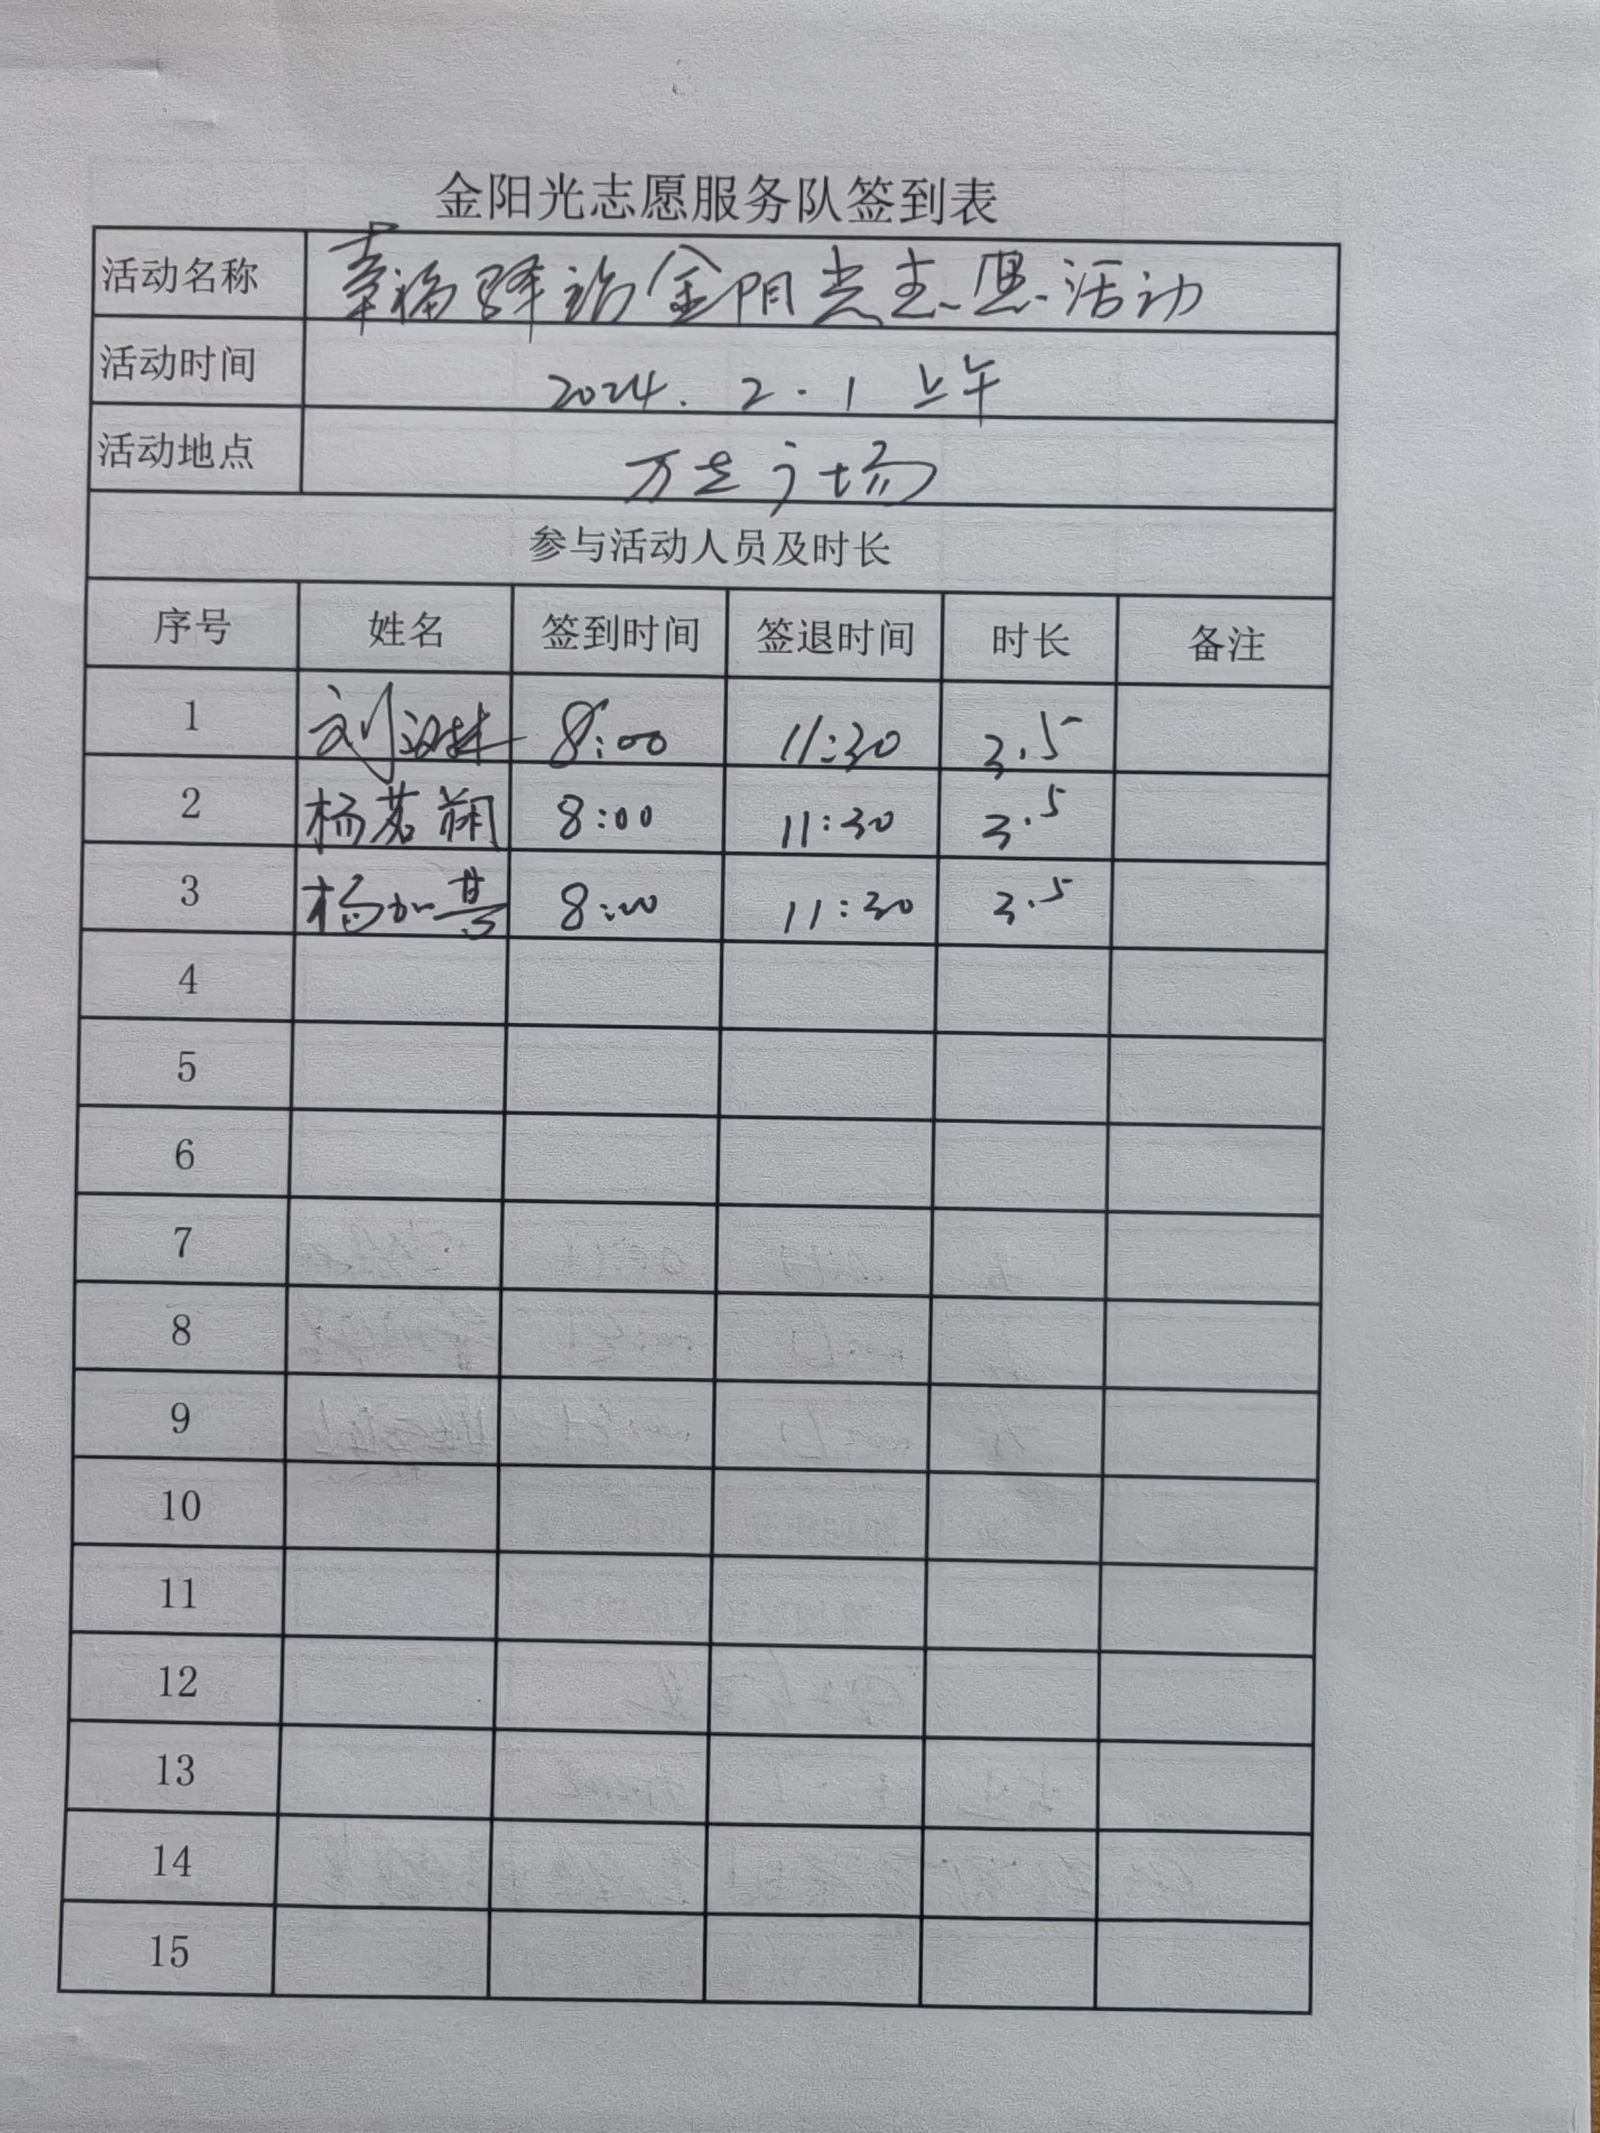 金阳光志愿服务队签到表
活动名称 幸福驿站金阳光志愿活动
活动时间 2024.2.1 上午
活动地点 万达广场
参与活动人员及时长
序号 姓名 签到时间 签退时间 时长 备注
1 刘 8:00 11:30 3.5
2 杨茗翔 8:00 11:30 3.5
3 杨加 8:00 11:30 3.5
4
5
6
7
8
9
10
11
12
13
14
15